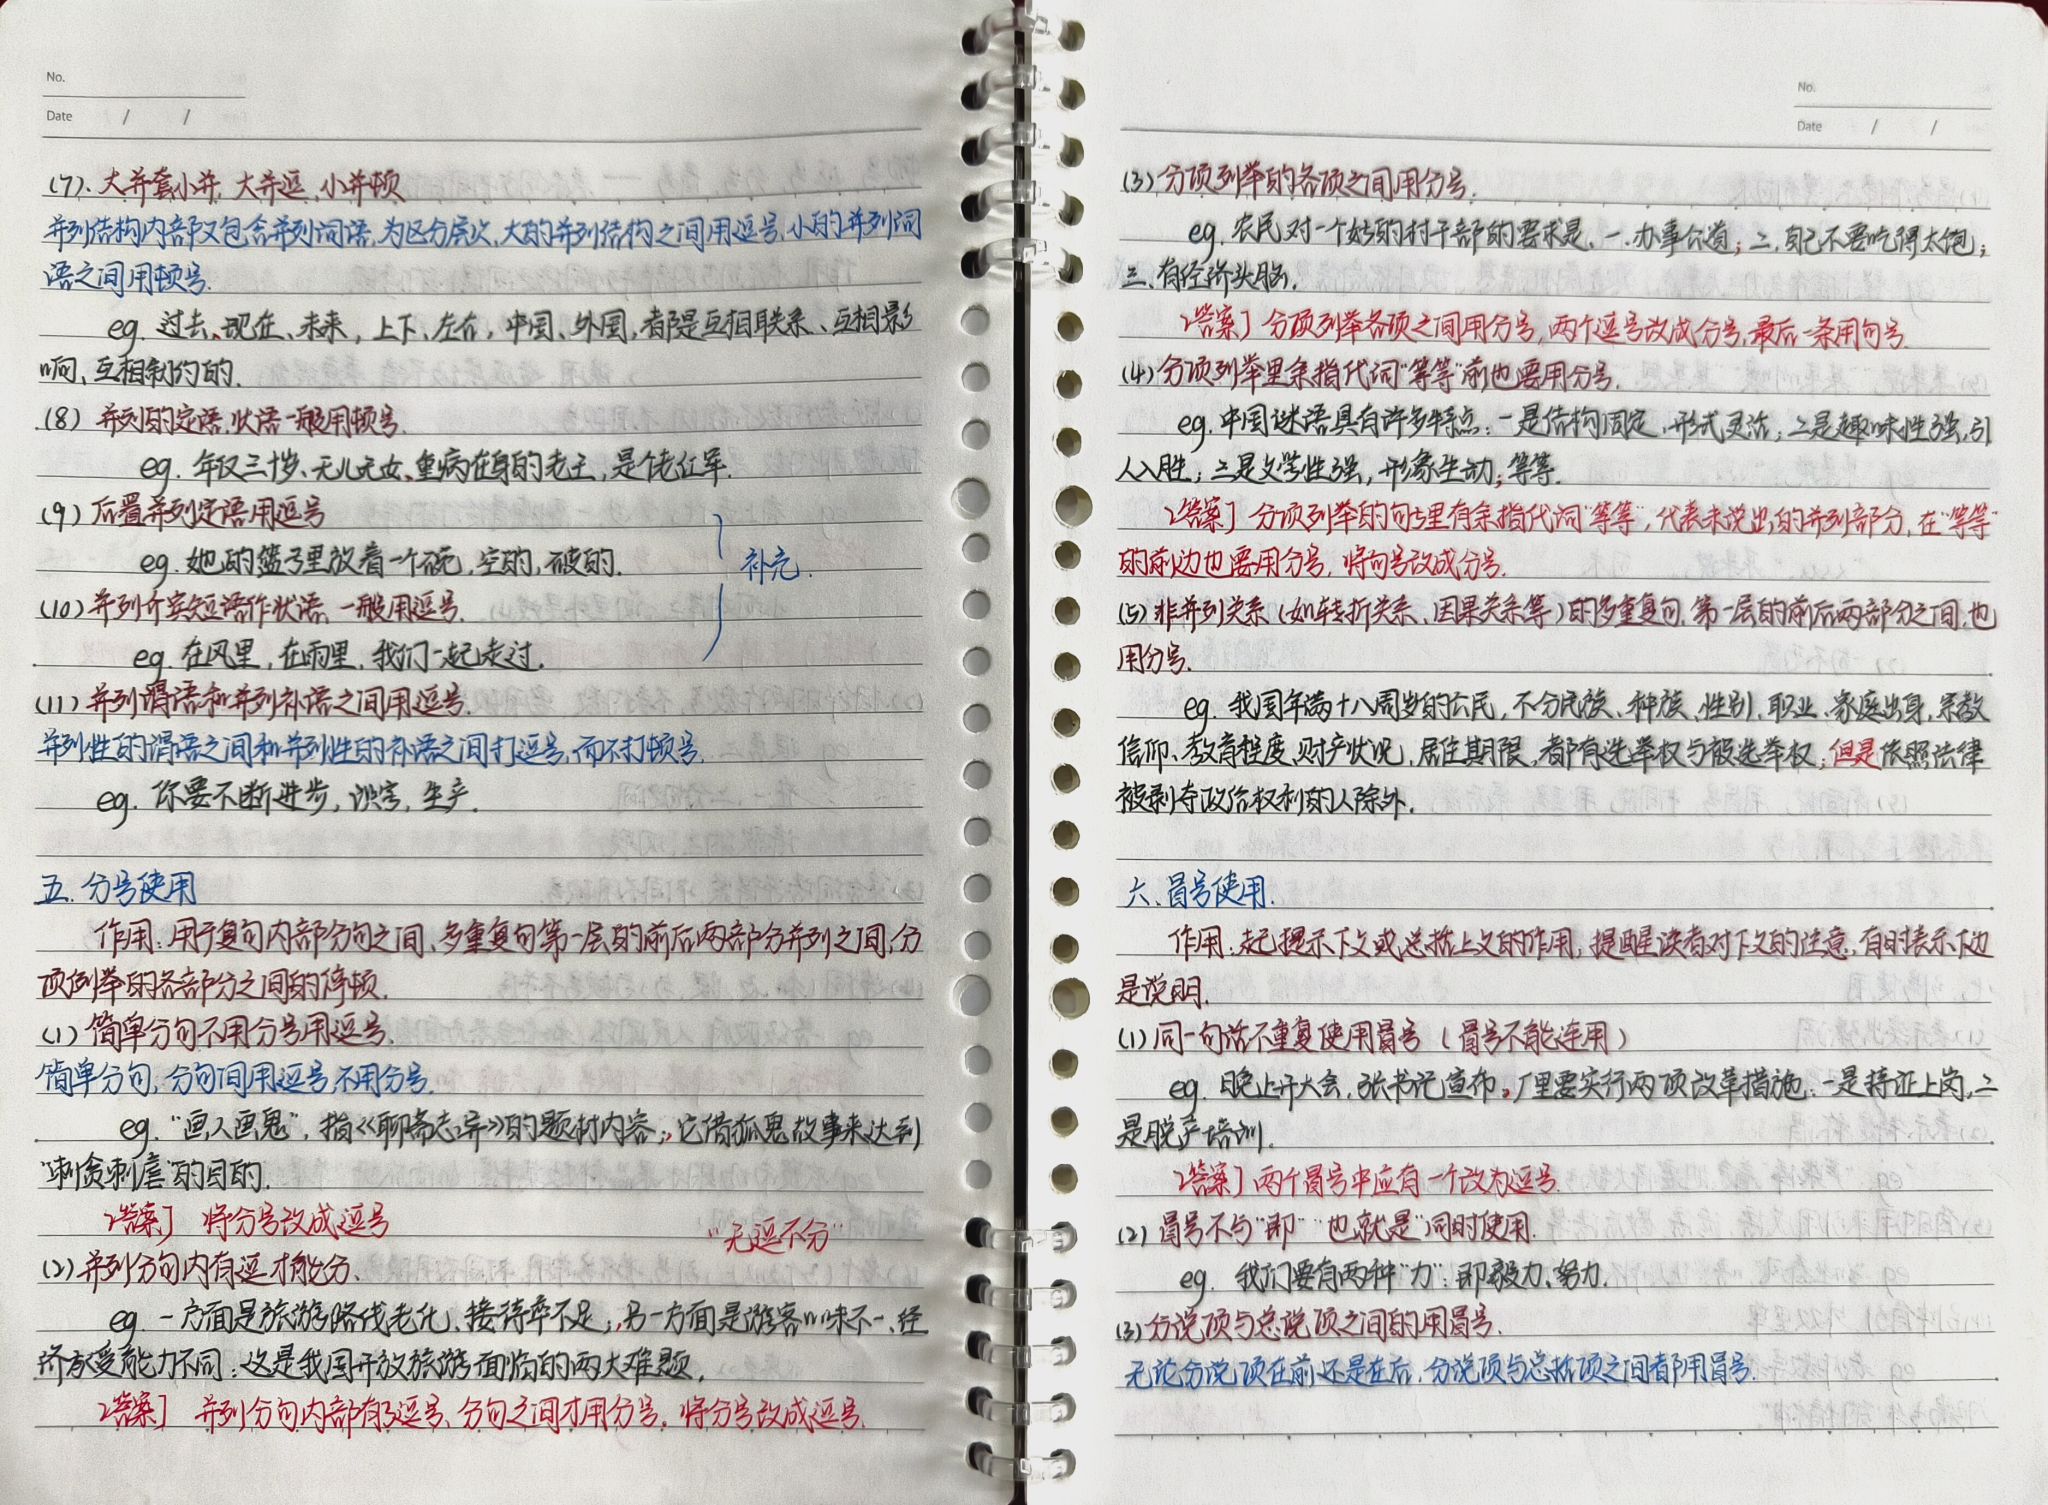 No.
Date / /
(7). 大并套小并, 大并逗, 小并顿
并列结构内部又包含并列词语, 为区分层次, 大的并列结构之间用逗号, 小的并列词
语之间用顿号.
eg. 过去、现在、未来, 上下、左右, 中国、外国, 都是互相联系、互相影
响、互相制约的.
(8) 并列的定语、状语一般用顿号.
eg. 年仅三十岁、无儿无女、重病在身的老王, 是个老红军.
(9) 后置并列定语用逗号
eg. 她的篮子里放着一个碗, 空的, 破的.
补充.
(10) 并列介宾短语作状语, 一般用逗号.
eg. 在风里, 在雨里, 我们一起走过.
(11) 并列谓语和并列补语之间用逗号.
并列性的谓语之间和并列性的补语之间打逗号, 而不打顿号.
eg. 你要不断进步, 识字, 生产.
五. 分号使用
作用: 用于复句内部分句之间、多重复句第一层的前后两部分并列之间, 分
项例举的各部分之间的停顿.
(1) 简单分句不用分号用逗号.
简单分句, 分句间用逗号, 不用分号.
eg. “画人画鬼”, 指《聊斋志异》的题材内容;, 它借狐鬼故事来达到
“刺贪刺虐”的目的.
[答案] 将分号改成逗号
“无逗不分”
(2) 并列分句内有逗才能分.
eg. 一方面是旅游路线老化、接待率不足;, 另一方面是游客口味不一、经
济承受能力不同: 这是我国开放旅游面临的两大难题.
[答案] 并列分句内部有了逗号、分句之间才用分号. 将分号改成逗号.
No.
Date / /
(3) 分项列举的各项之间用分号.
eg. 农民对一个好的村干部的要求是、一. 办事公道; 二. 自己不要吃得太饱;
三、有经济头脑.
[答案] 分项列举各项之间用分号, 两个逗号改成分号, 最后一条用句号.
(4) 分项列举里余指代词“等等”前也要用分号.
eg. 中国谜语具有许多特点: 一是结构固定, 形式灵活; 二是趣味性强, 引
人入胜; 三是文学性强, 形象生动; 等等.
[答案] 分项列举的句子里有余指代词“等等”, 代表未说出的并列部分, 在“等等”
的前边也要用分号, 将句号改成分号.
(5) 非并列关系 (如转折关系、因果关系等) 的多重复句, 第一层的前后两部分之间, 也
用分号.
eg. 我国年满十八周岁的公民, 不分民族、种族、性别、职业、家庭出身、宗教
信仰、教育程度、财产状况, 居住期限, 都有选举权与被选举权; 但是依照法律
被剥夺政治权利的人除外.
六. 冒号使用.
作用: 起提示下文或总括上文的作用, 提醒读者对下文的注意, 有时表示下边
是说明.
(1) 同一句话不重复使用冒号 (冒号不能连用)
eg. 晚上开大会, 张书记宣布, 厂里要实行两项改革措施: 一是持证上岗, 二
是脱产培训.
[答案] 两个冒号中应有一个改为逗号.
(2) 冒号不与“即” “也就是”同时使用.
eg. 我们要有两种“力”: 即毅力、努力.
(3) 分说项与总说项之间的用冒号.
无论分说项在前还是在后, 分说项与总括项之间都用冒号.